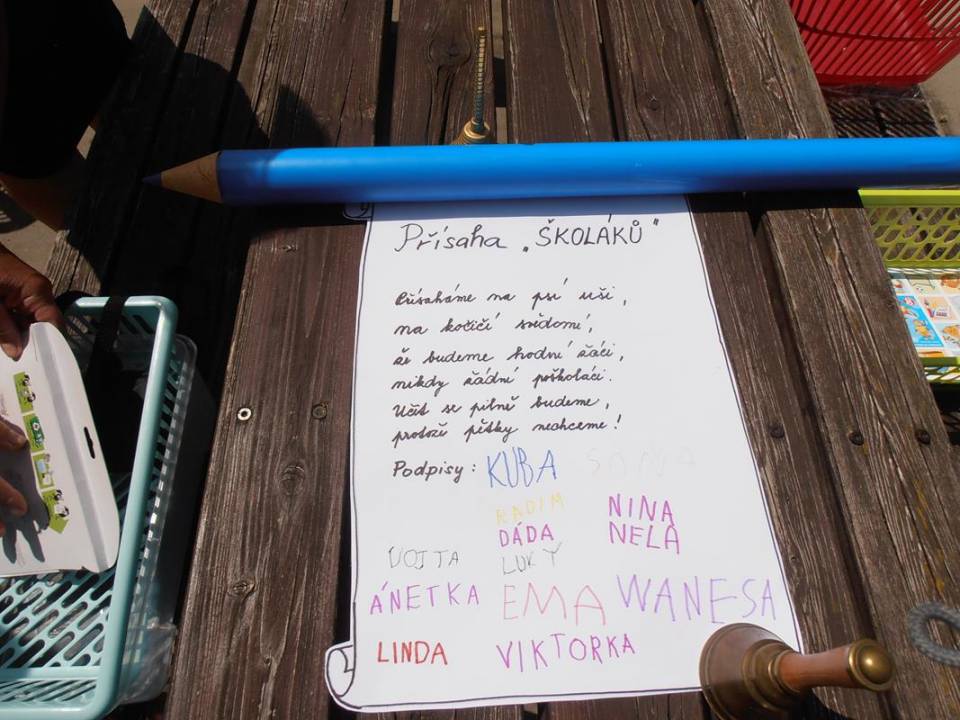 Přísaha „ŠKOLÁKŮ"
Přísaháme na psí uši,
na kočičí svědomí,
že budeme hodní žáci,
nikdy žádní poškoláci.
Učit se pilně budeme,
protože pětky nechceme!
Podpisy: KUBA SOŇA
RADIM NINA
DÁDA NELA
VOJTA LUKY
ÁNETKA EMA WANESA
LINDA VIKTORKA